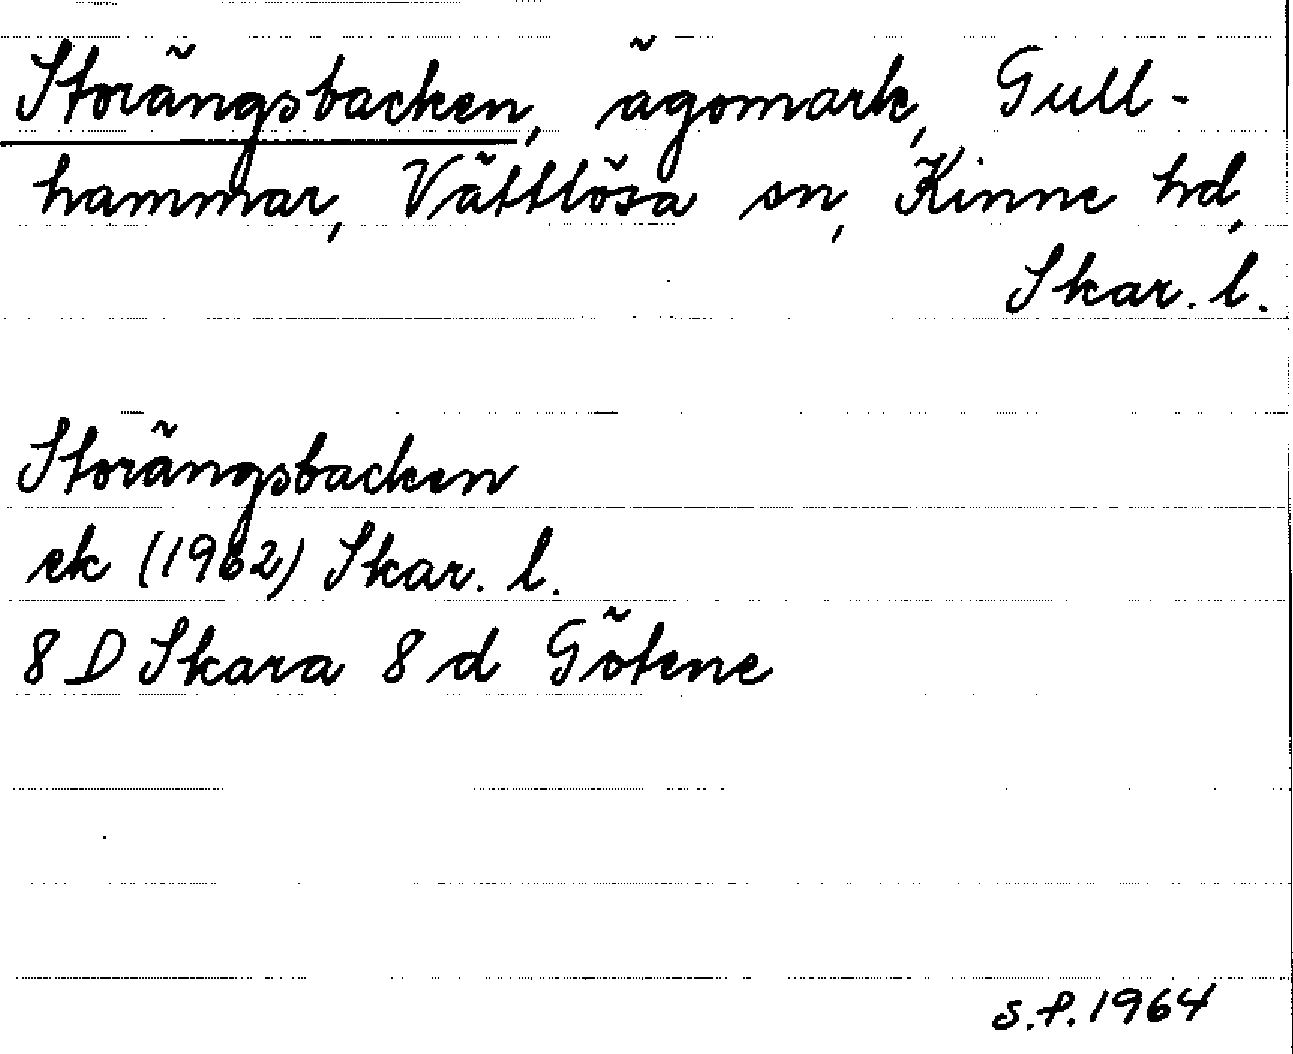 Storängsbacken, ägomark, Gull-
hammar, Vättlösa sn, Kinne hd,
Skar. l.
Storängsbacken
ek (1962) Skar. l.
8 D Skara 8 d Götene
S.P. 1964